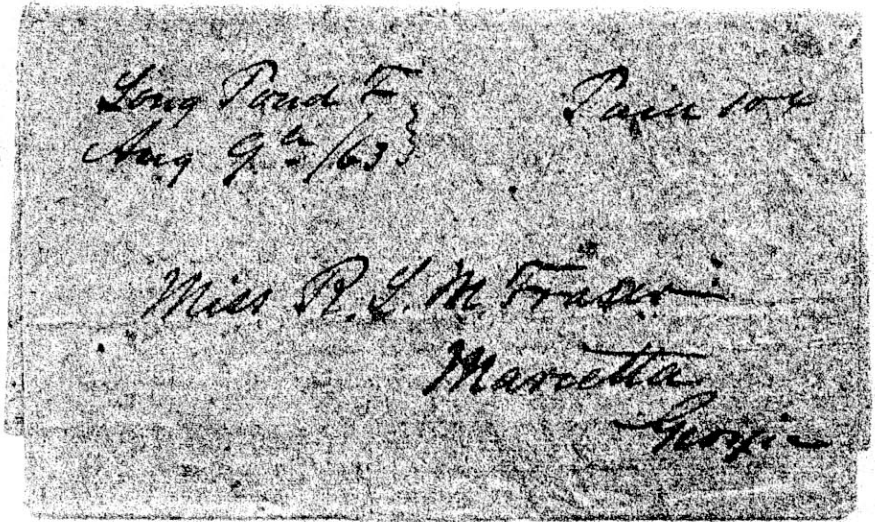 Long Pond F
Aug 9th /63
Paid 10¢
Miss R. L. M. Fraser
Marietta
Georgia